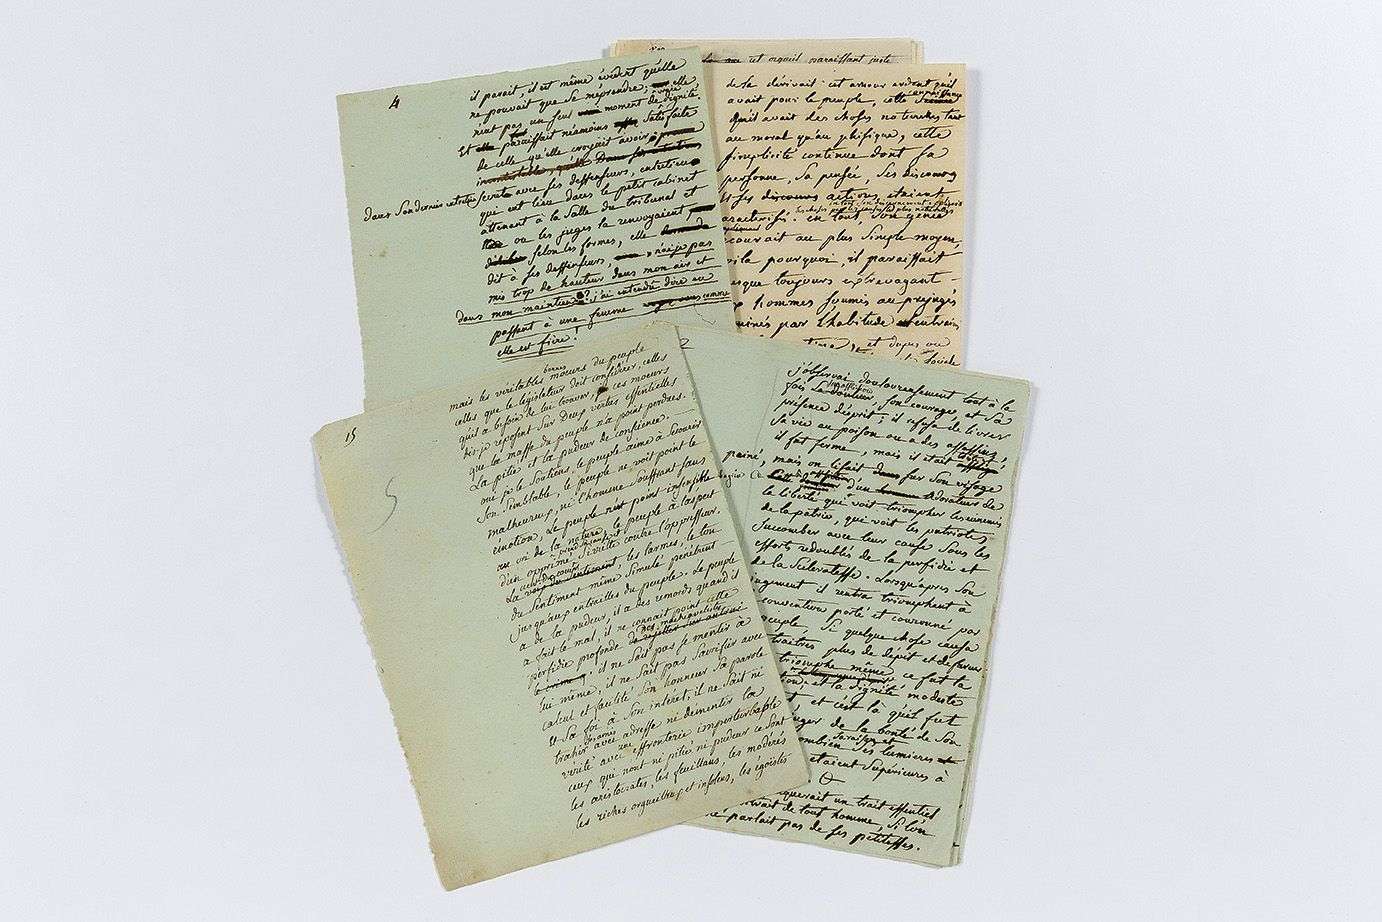 4
il parait, il est même évident qu'elle
ne pouvait que se méprendre; elle
n'eut pas un seul vrai moment de dignité.
Et elle paraissait néamoins satisfaite
de celle qu'elle croyait avoir
dans son dernier entretien secrete avec ses deffenseurs, entretien
qui eut lieu dans le petit cabinet
attenant à la salle du tribunal et
ou les juges la renvoyaient
selon les formes, elle
dit à ses deffenseurs, n'ai-je pas
mis trop de hauteur dans mon air et
dans mon maintien? j'ai entendu dire en
passant à une femme
elle est fière!
cet orgueil paraissant juste
de la dérivait: cet amour evident qu'il
avait pour le peuple, cette
qu'il avait des choses naturelles tant
au moral qu'au phisique, cette
simplicité continue dont sa
personne, sa pensée, ses discours
et ses discours actions étaient
caracterisés. en tout, son genie
courait au plus simple moyen,
voila pourquoi, il paraissait
presque toujours extrevagant
hommes soumis au prejugés
par l'habitude
et dupes ou
15
5
mais les veritables bonnes moeurs du peuple
celles que le législateur doit conserver, celles
qu'il a besoin de lui trouver, ces moeurs
dis-je reposent sur deux vertus essentielles
que la masse du peuple n'a point perdues.
La pitié et la pudeur de conscience.
le peuple aime à secourir
son semblable, le peuple ne voit point le
malheureux, ni l'homme souffrant sans
emotion, le peuple n'est point insensible
au cri de la nature, le peuple à l'aspect
d'un opprimé s'irrite contre l'oppresseur,
La voix du sentiment, les larmes, le ton
du sentiment même simulé pénètrent
jusqu'aux entrailles du peuple. Le peuple
a de la pudeur, il a des remords quand il
a fait le mal, il ne connait point cette
perfidie profonde des machiavelistes
il ne sait pas se mentir à
lui même, il ne sait pas sacrifier avec
calcul et facilité son honneur sa parole
et sa foi à son interet, il ne sait ni
trahir jamais avec adresse ni dementir la
verité avec une effronterie imperturbable
ceux qui n'ont ni pitié ni pudeur ce sont
les aristocrates, les feuillans, les modérés
les riches orgueilleux et insolens, les égoistes
2
j'observai douloureusement tout à la
fois sa douleur son courage, et sa
présence d'esprit; il refusa de livrer
sa vie au poison ou a des assassins,
il fut ferme, mais il était
peiné, mais on lisait sur son visage
d'un adorateur de
la liberté qui voit triompher les ennemis
de la patrie, qui voit les patriotes
succomber avec leur cause sous les
efforts redoublés de la perfidie et
de la sceleratesse. Lorsqu'apres son
jugement il rentra triomphant à
convention porté et couronné par
peuple, si quelque chose causa
traitres plus de depit et de fureur
triomphe même, ce fut la
et la dignité modeste
et c'est là qu'il fut
juger de la bonté de son
combien ses lumieres
etaient supérieures à
manquerait un trait essentiel
portrait de tout homme, si l'on
ne parlait pas de ses petitesses.